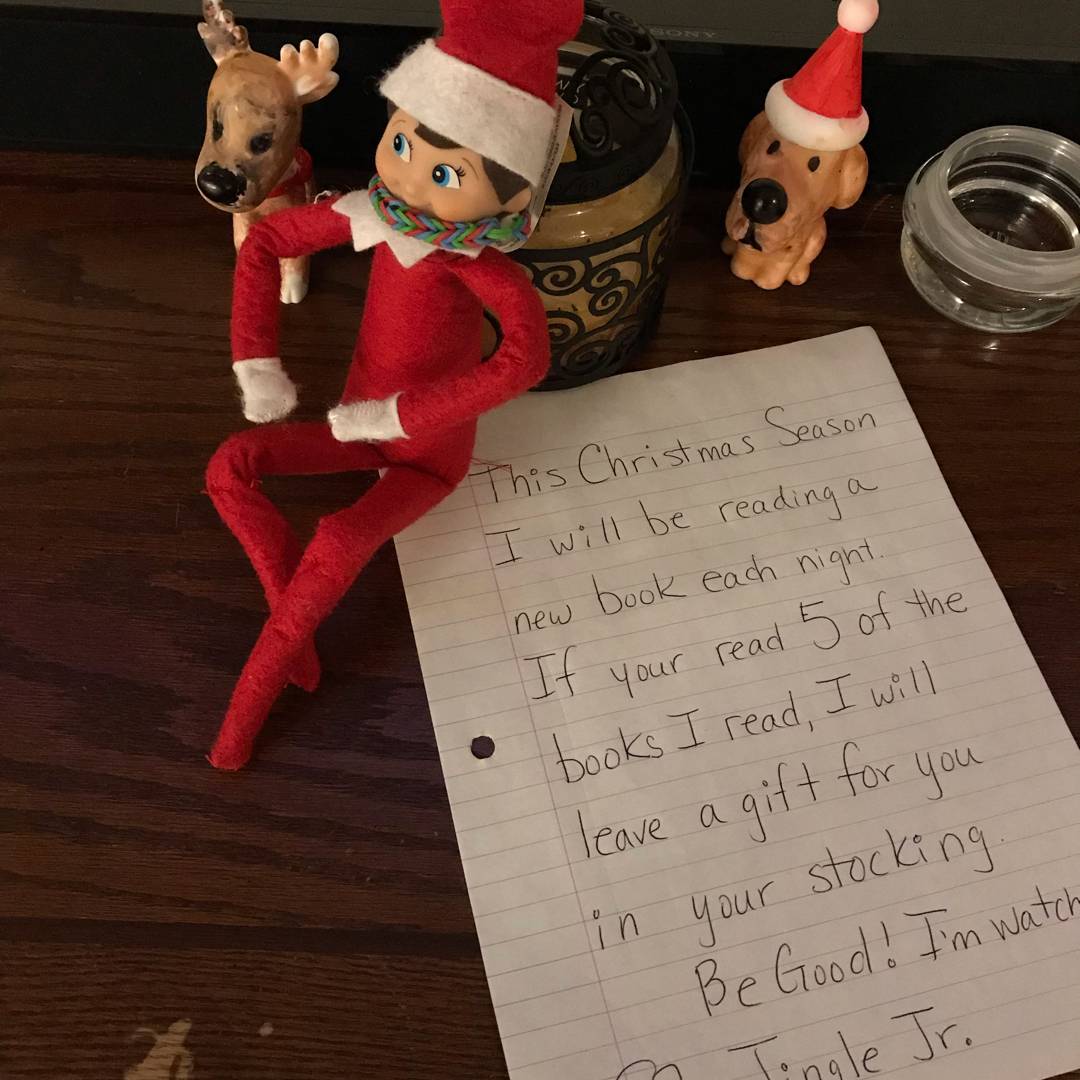 SONY
This Christmas Season
I will be reading a
new book each night.
If your read 5 of the
books I read, I will
leave a gift for you
in your stocking.
Be Good! I'm watch
Jingle Jr.